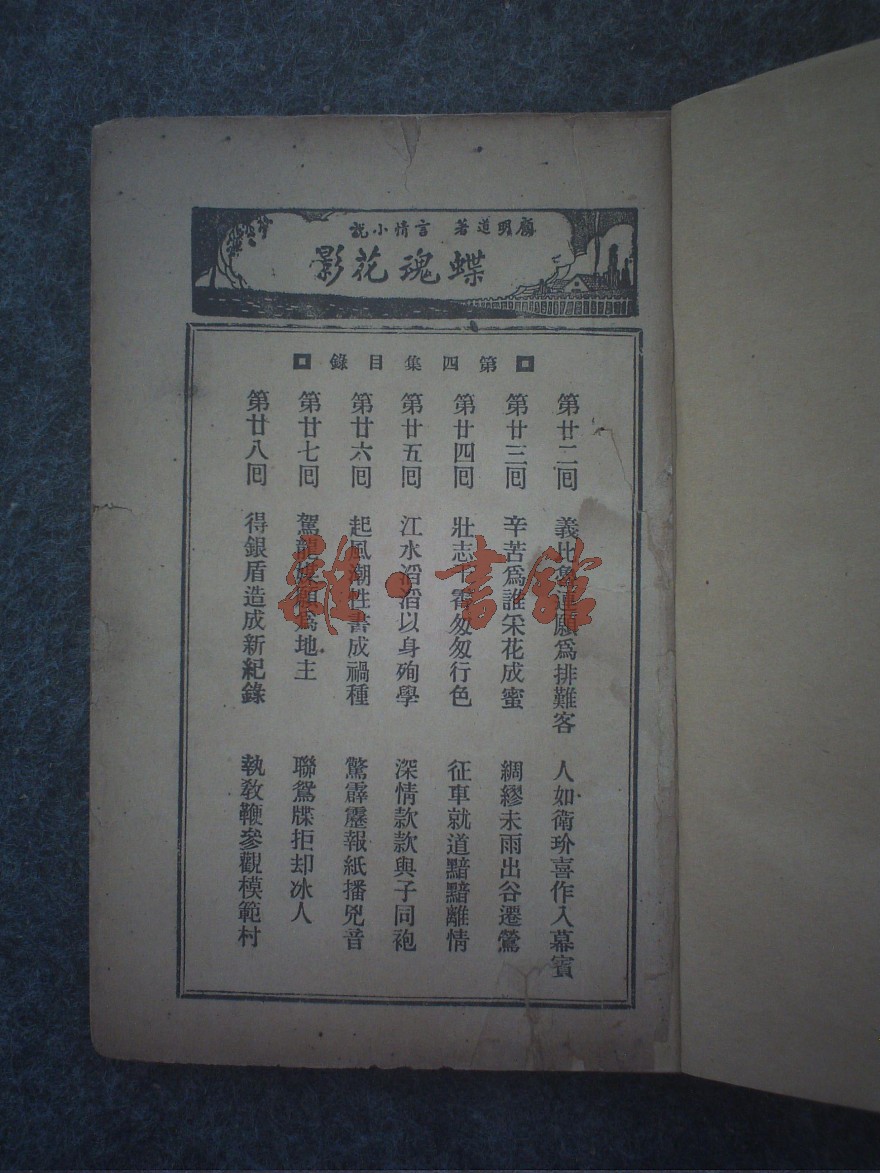 顧明道著 言情小說
蝶魂花影
第四集目錄
第廿二囘 義比魯連願爲排難客 人如衛玠喜作入幕賓
第廿三囘 辛苦爲誰采花成蜜 綢繆未雨出谷遷鶯
第廿四囘 壯志干霄匆匆行色 征車就道黯黯離情
第廿五囘 江水滔滔以身殉學 深情款款與子同袍
第廿六囘 起風潮性書成禍種 驚霹靂報紙播兇音
第廿七囘 駕龍媒願爲地主 聯鴛牒拒却冰人
第廿八囘 得銀盾造成新紀錄 執敎鞭參觀模範村
雜·書館